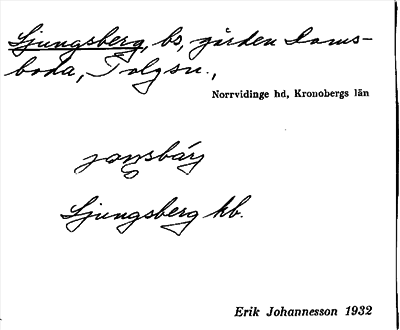 Ljungsberg, bs, gården Dams-
boda, Tolgsn.,
Norrvidinge hd, Kronobergs län
joŋsbárj
Ljungsberg kb.
Erik Johannesson 1932